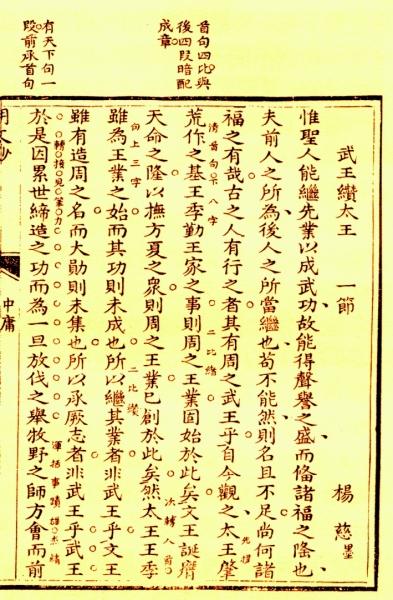 首句四比與
後四段暗配
成章
有天下句一
段前承首句
武王纘太王 一節 楊慈 墨
惟聖人能繼先業以成武功故能得聲譽之盛而備諸福之隆也
夫前人之所為後人之所當繼也苟不能然則名且不足尚何諸
福之有哉古之人有行之者其有周之武王乎自今觀之太王肇
荒作之基王季勤王家之事則周之王業固始於此矣文王誕膺
清首句下八字
天命之隆以撫方夏之衆則周之王業已創於此矣然太王王季
向上三字
雖為王業之始而其功則未成也所以繼其業者非武王乎文王
二比縱
雖有造周之名而大勳則未集也所以承厥志者非武王乎武王
轉接見筆力
於是因累世締造之功而為一旦放伐之舉牧野之師方會而前
中庸